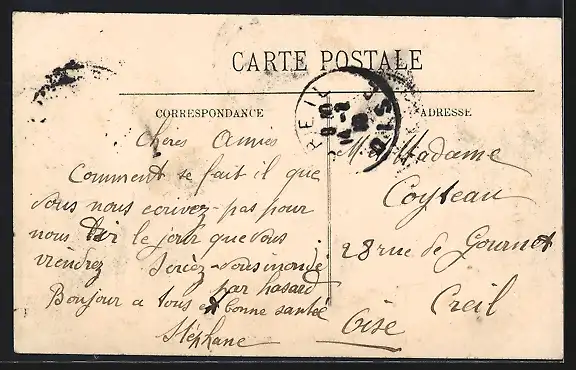 CARTE POSTALE
CORRESPONDANCE
ADRESSE
Chères Amies
Comment se fait il que
vous nous ecrivez-pas pour
nous dir le jour que vous
viendrez Seriez-vous inondé
par hasard
Bonjour a tous et bonne santée
Stéphane
M. et Madame
Coyteau
28 rue de Gournot
Creil
Oise
CREIL
OISE